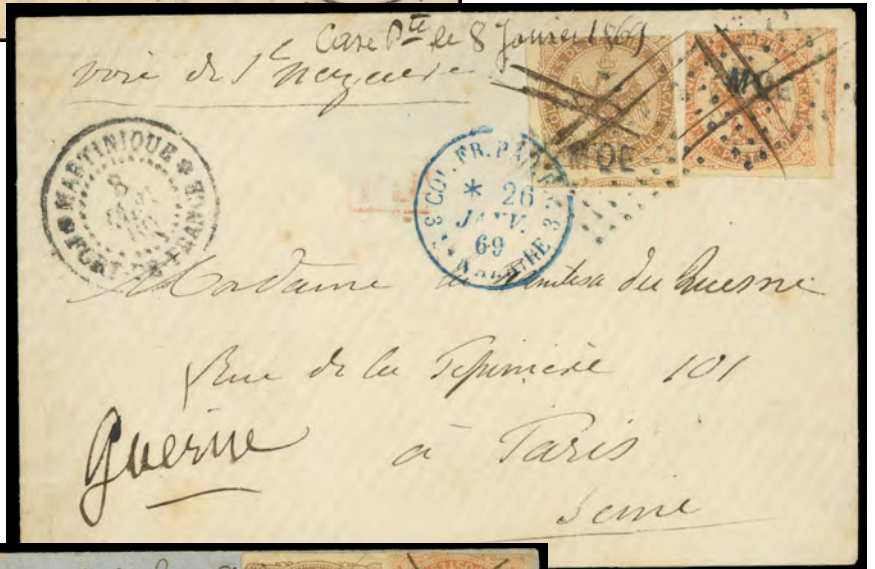 Case P.te le 8 Janvier 1869
voie de St Nazaire
MARTINIQUE
8
FORT-DE-FRANCE
COL. FR. PAQ. F.
3 * 26 3
JANV.
69
MQE
MQE
COLONIES DE
EMPIRE
Madame la Comtesse du Quesne
Rue de la Pépinière 101
Guerne
à Paris
Seine